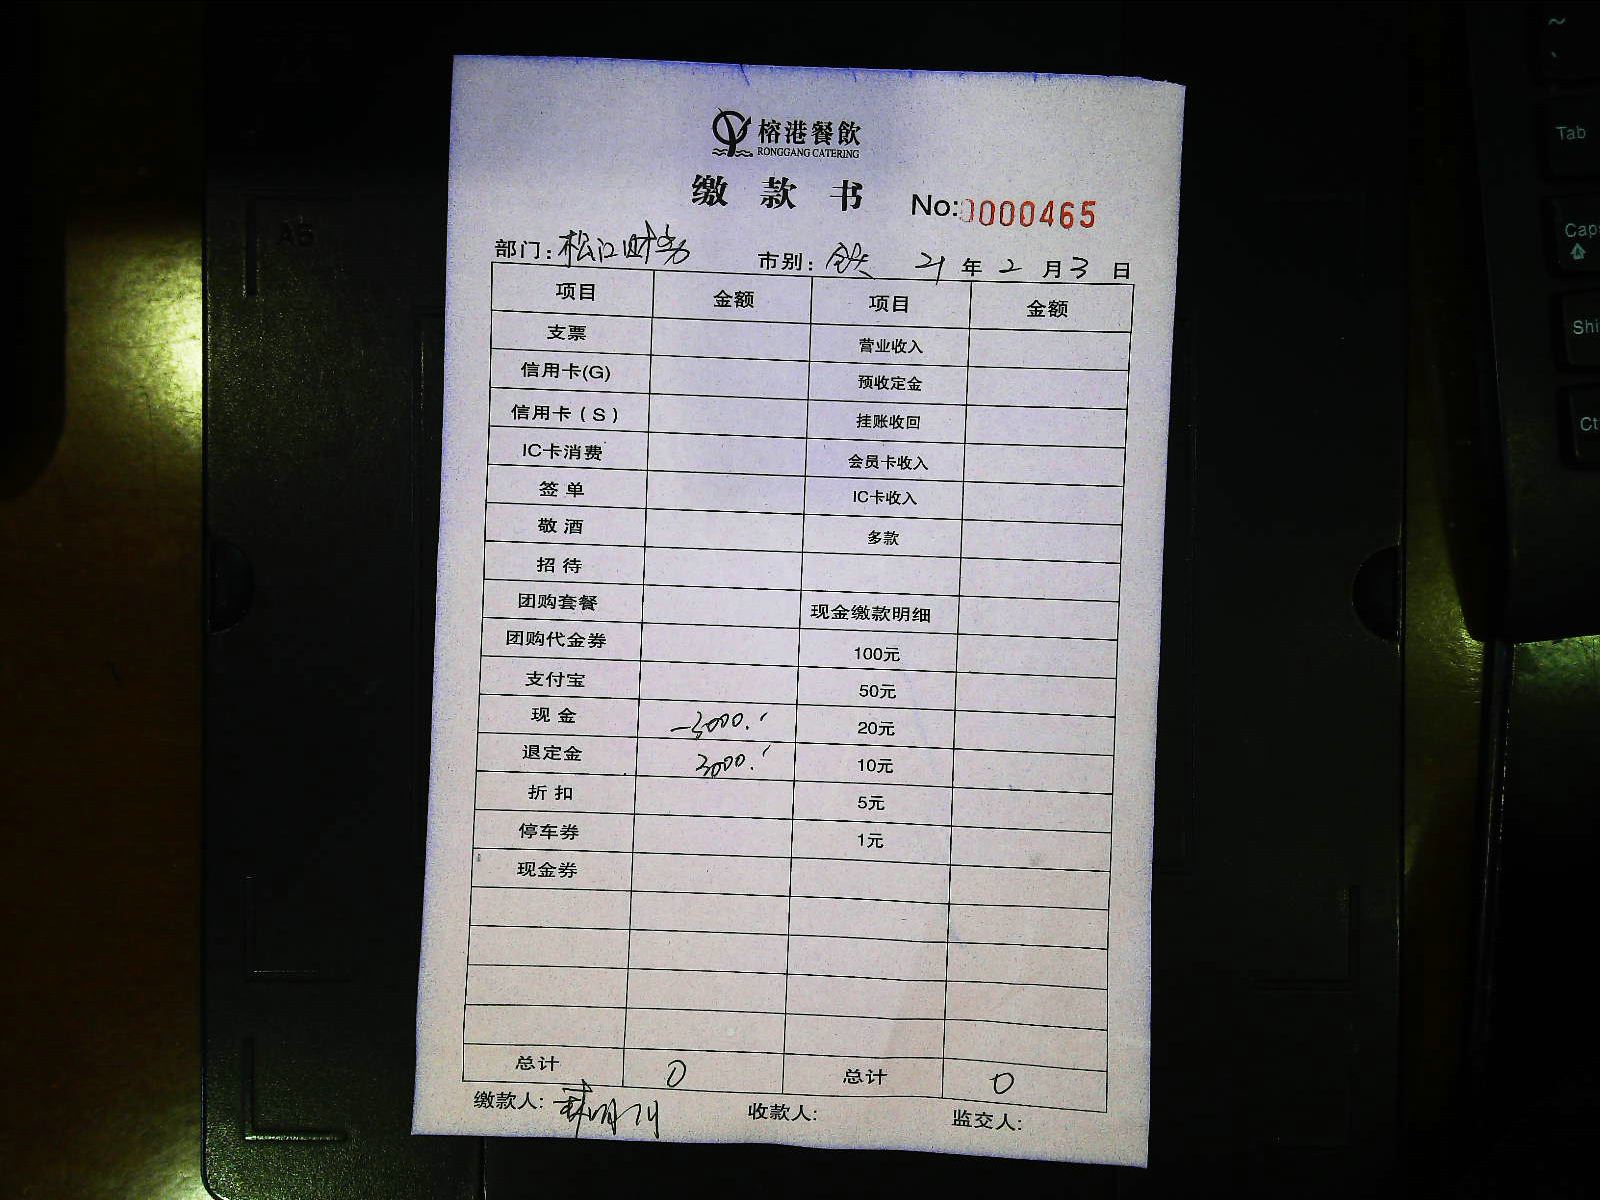 榕港餐飲
RONGGANG CATERING
缴款书 No:0000465
部门:松江财务 市别: 21年2月3日
项目 金额 项目 金额
支票 营业收入
信用卡(G) 预收定金
信用卡(S) 挂账收回
IC卡消费 会员卡收入
签单 IC卡收入
敬酒 多款
招待
团购套餐 现金缴款明细
团购代金券 100元
支付宝 50元
现金 -3000. 20元
退定金 3000. 10元
折扣 5元
停车券 1元
现金券
总计 0 总计 0
缴款人: 收款人: 监交人:
~
`
Tab
Caps
Shi
Ct
A5